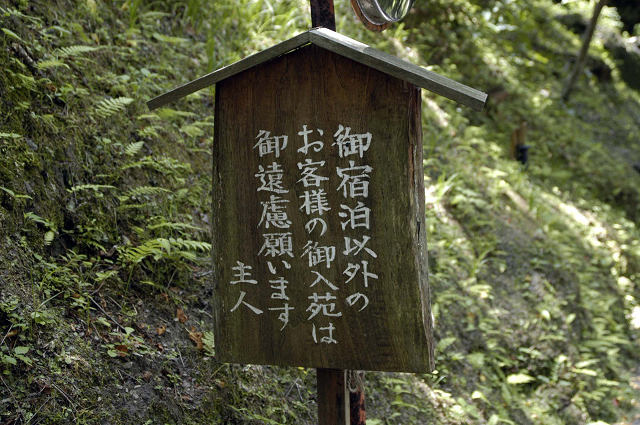 御宿泊以外の
お客様の御入苑は
御遠慮願います
主人